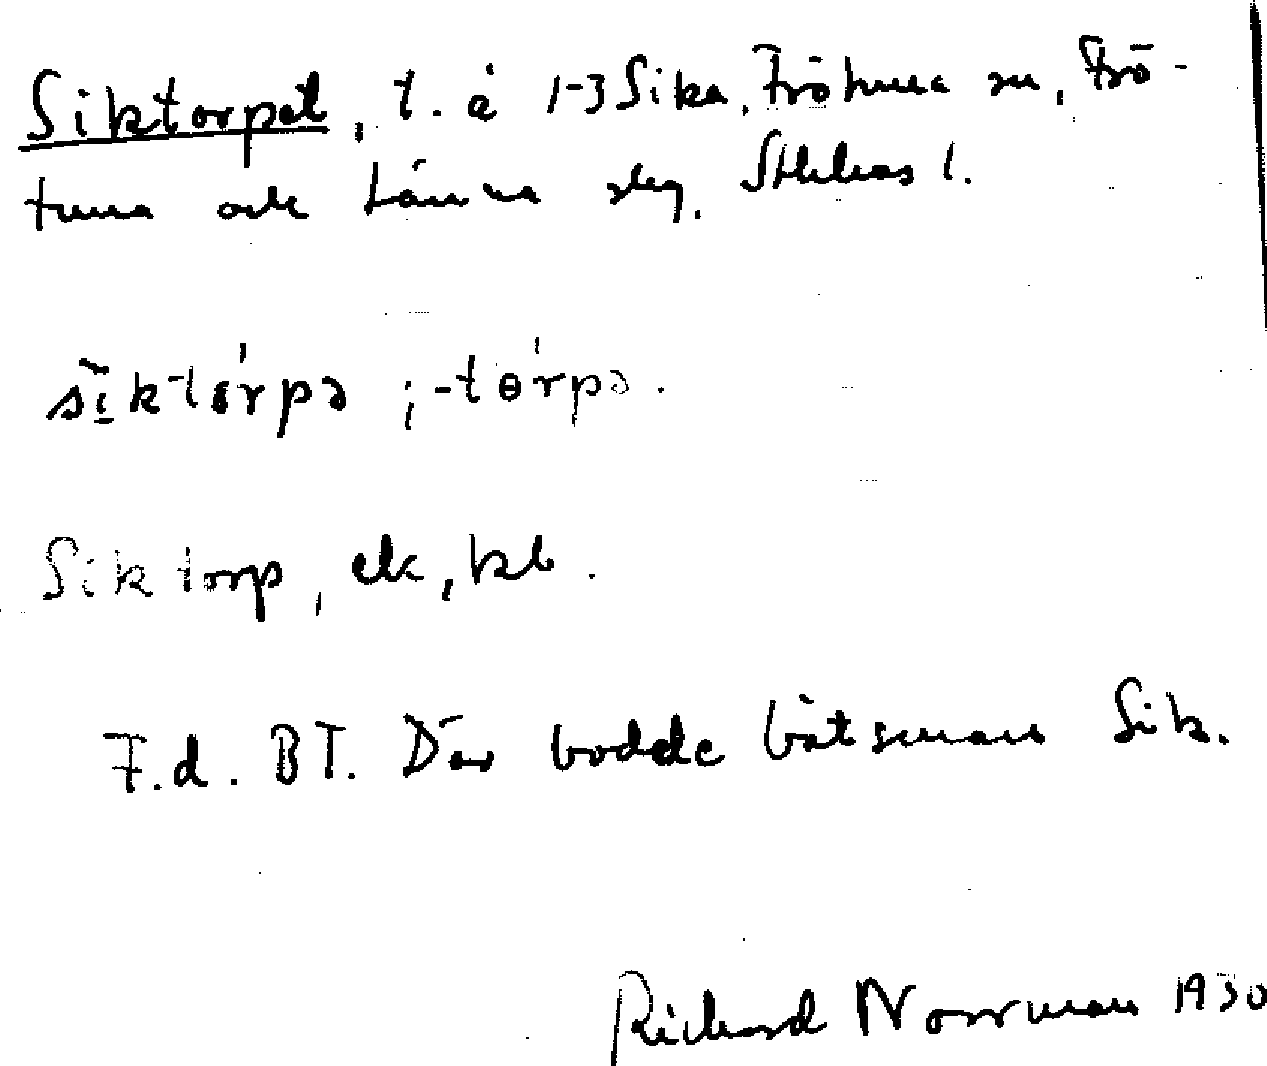 Siktorpet, t. å 1-3 Sika, Frötuna sn, Frö-
tuna och Länna slg, Sthlms l.
sĩktórpə ; -tɵ́rpə.
Siktorp, ek, kb.
F.d. BT. Där bodde båtsman Sik.
Richard Norrman 1930